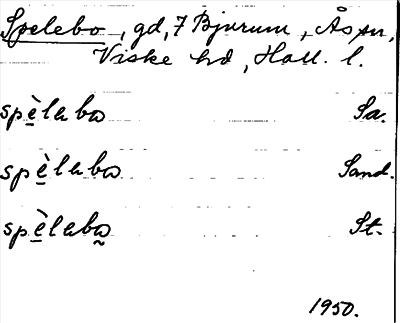 Spelebo, gd, 7 Bjurum, Ås sn,
Viske hd, Hall. l.
spè̲labω Sa.
spè̲labω Sand.
spè̲labω̰ St.
1950.